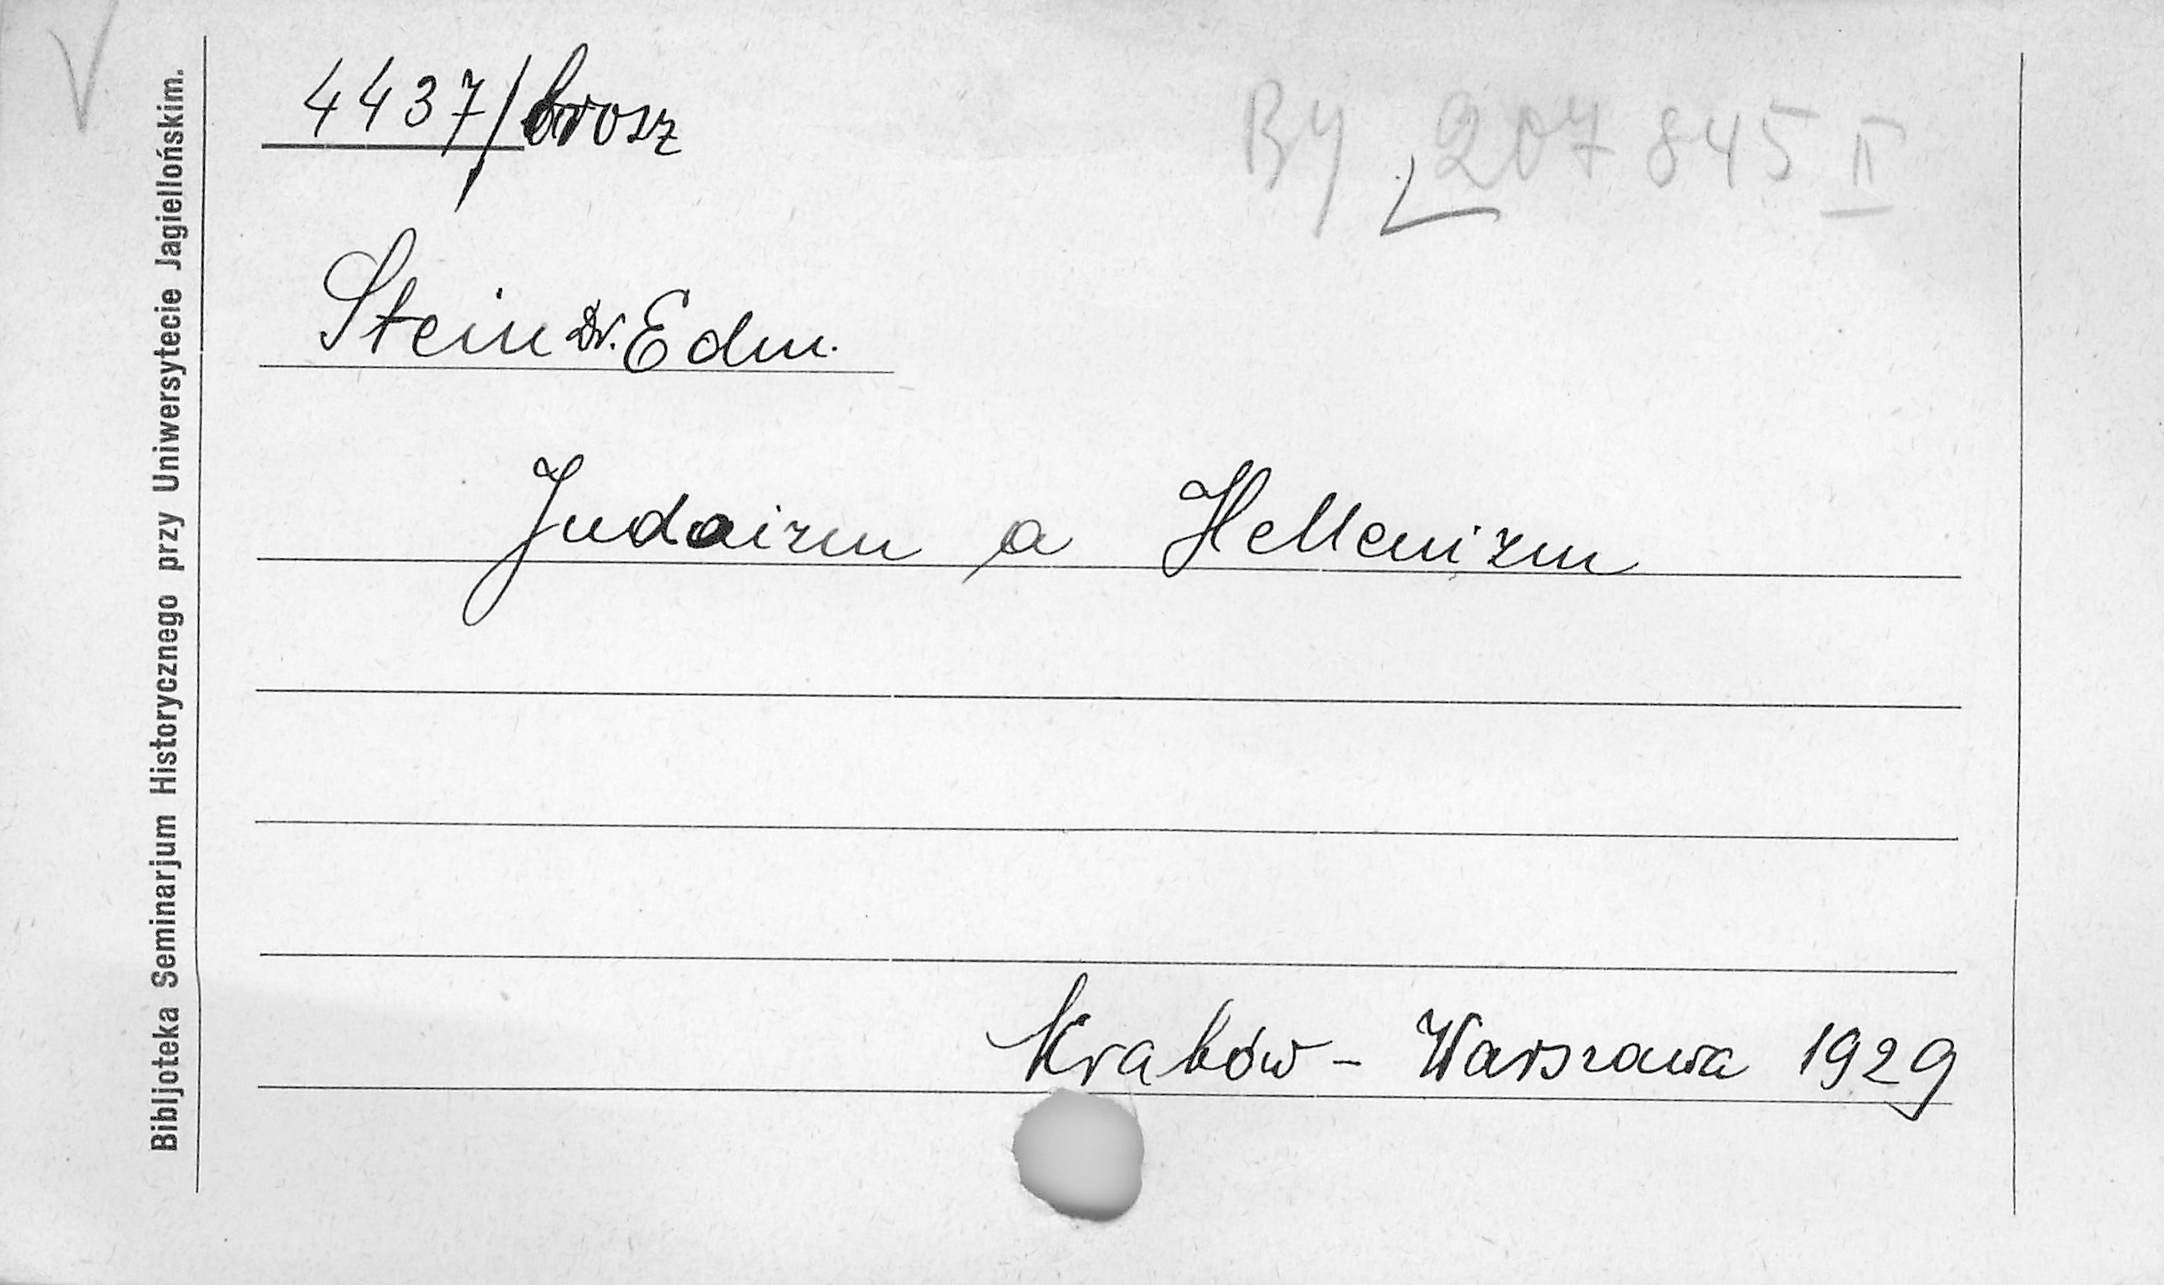 4437/brosz
BY 207 845 II
Stein Dr. Edm.
Judaizm a Hellenizm
Kraków - Warszawa 1929
Bibljoteka Seminarjum Historycznego przy Uniwersytecie Jagiellońskim.